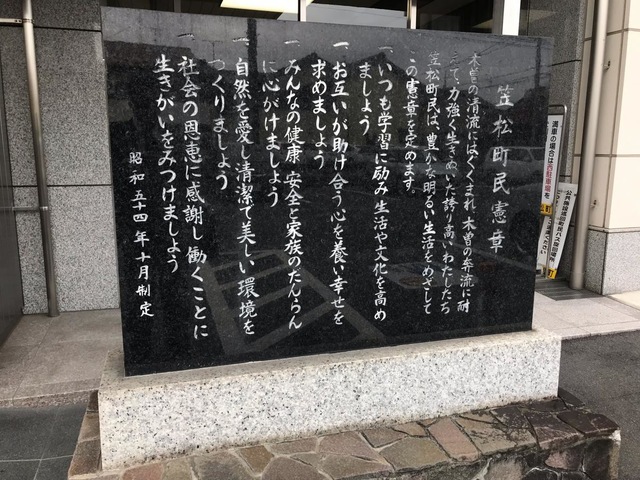 笠松町民憲章
木曽の清流にはぐくまれ、木曽の奔流に耐
えて、力強く生きぬいた誇り高いわたしたち
笠松町民は、豊かな明るい生活をめざして
この憲章を定めます。
一、いつも学習に励み生活や文化を高め
ましよう
一、お互いが助け合う心を養い幸せを
求めましよう
一、みんなの健康、安全と家族のだんらん
に心がけましよう
一、自然を愛し清潔で美しい環境を
つくりましよう
一、社会の恩恵に感謝し働くことに
生きがいをみつけましよう
昭和五十四年十月制定
満車の場合は西駐車場を
公共施設巡回町民バス停留場所